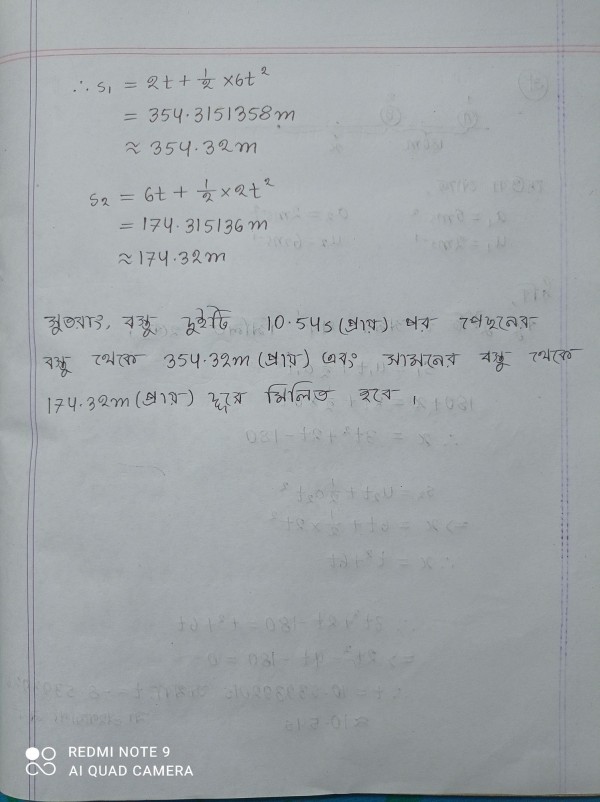 ∴ s₁ = 2t + ½ × 6t²
= 354.3151358m
≈ 354.32m
s₂ = 6t + ½ × 2t²
= 174.315136m
≈ 174.32m
সুতরাং, বস্তু দুইটি 10.54s (প্রায়) পর পেছনের
বস্তু থেকে 354.32m (প্রায়) এবং সামনের বস্তু থেকে
174.32m (প্রায়) দূরে মিলিত হবে।
REDMI NOTE 9
AI QUAD CAMERA